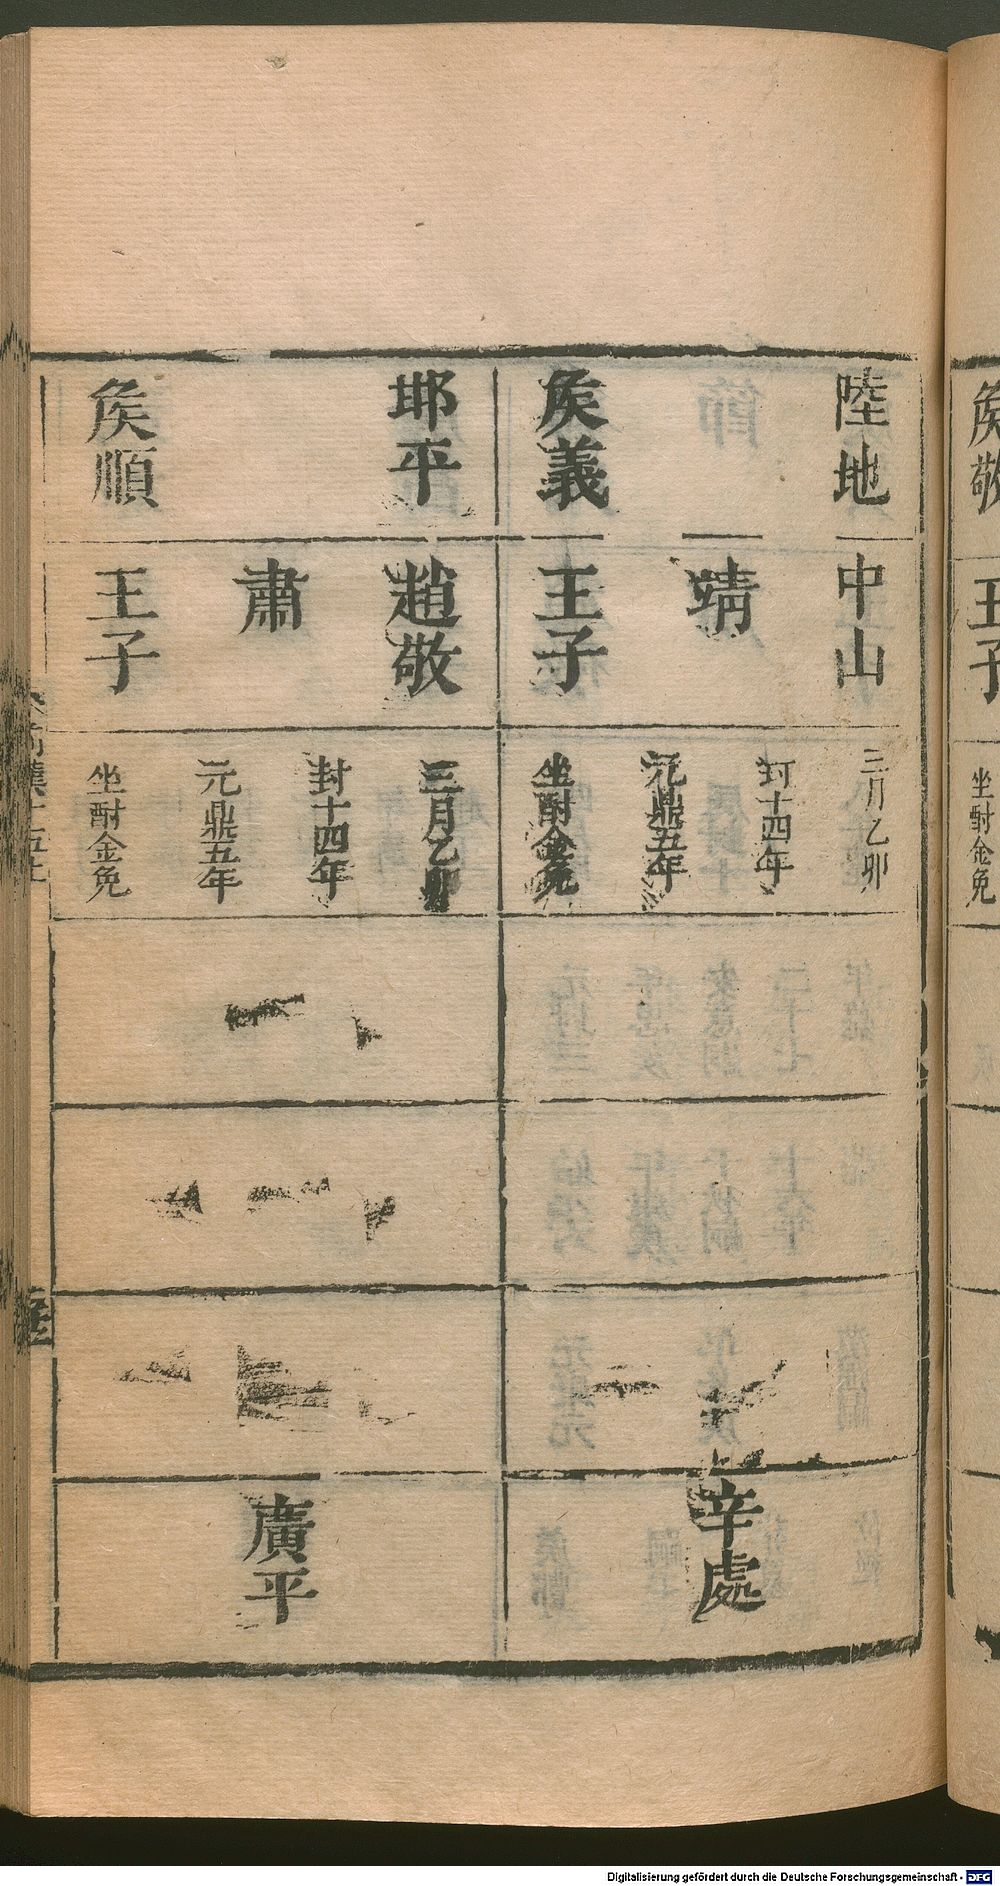 陸地
侯義
中山
靖
王子
三月乙卯
封十四年
元鼎五年
坐酎金免
辛處
邯平
侯順
趙敬
肅
王子
三月乙卯
封十四年
元鼎五年
坐酎金免
廣平
王子
坐酎金免
Digitalisierung gefördert durch die Deutsche Forschungsgemeinschaft - DFG